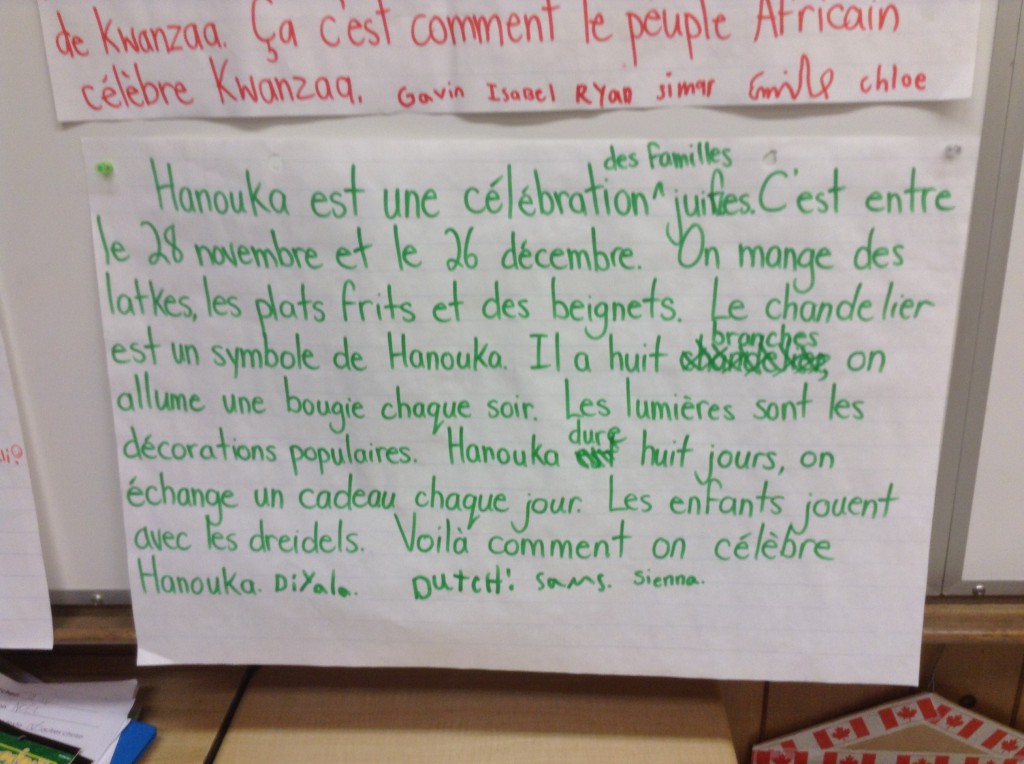 de Kwanzaa. Ça c'est comment le peuple Africain
célèbre Kwanzaa. Gavin Isabel Ryan simar Emile chloe
des familles
Hanouka est une célébration ^ juifes. C'est entre
le 28 novembre et le 26 décembre. On mange des
latkes, les plats frits et des beignets. Le chandelier
branches
est un symbole de Hanouka. Il a huit on
allume une bougie chaque soir. Les lumières sont les
dure
décorations populaires. Hanouka est huit jours, on
échange un cadeau chaque jour. Les enfants jouent
avec les dreidels. Voilà comment on célèbre
Hanouka. DiYala. DUTCH! sams. Sienna.